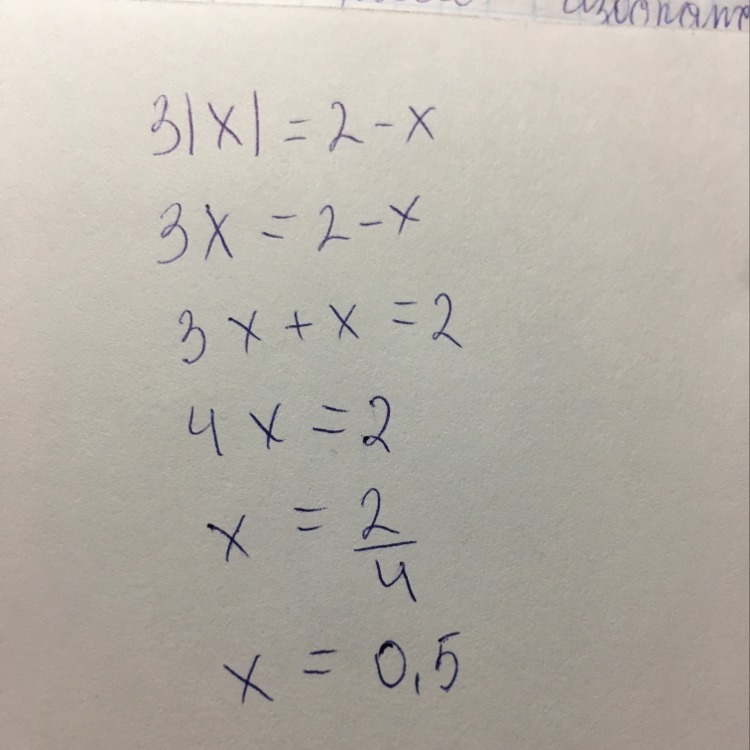 3|x| = 2 - x
3x = 2 - x
3x + x = 2
4x = 2
x = 2/4
x = 0,5